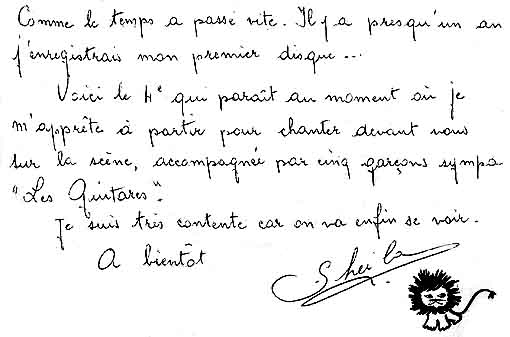 Comme le temps a passé vite. Il y a presqu'un an
j'enregistrais mon premier disque...
Voici le 4e qui paraît au moment où je
m'apprête à partir pour chanter devant vous
sur la scène, accompagnée par cinq garçons sympa
"Les Guitares".
Je suis très contente car on va enfin se voir.
A bientôt
Sheila